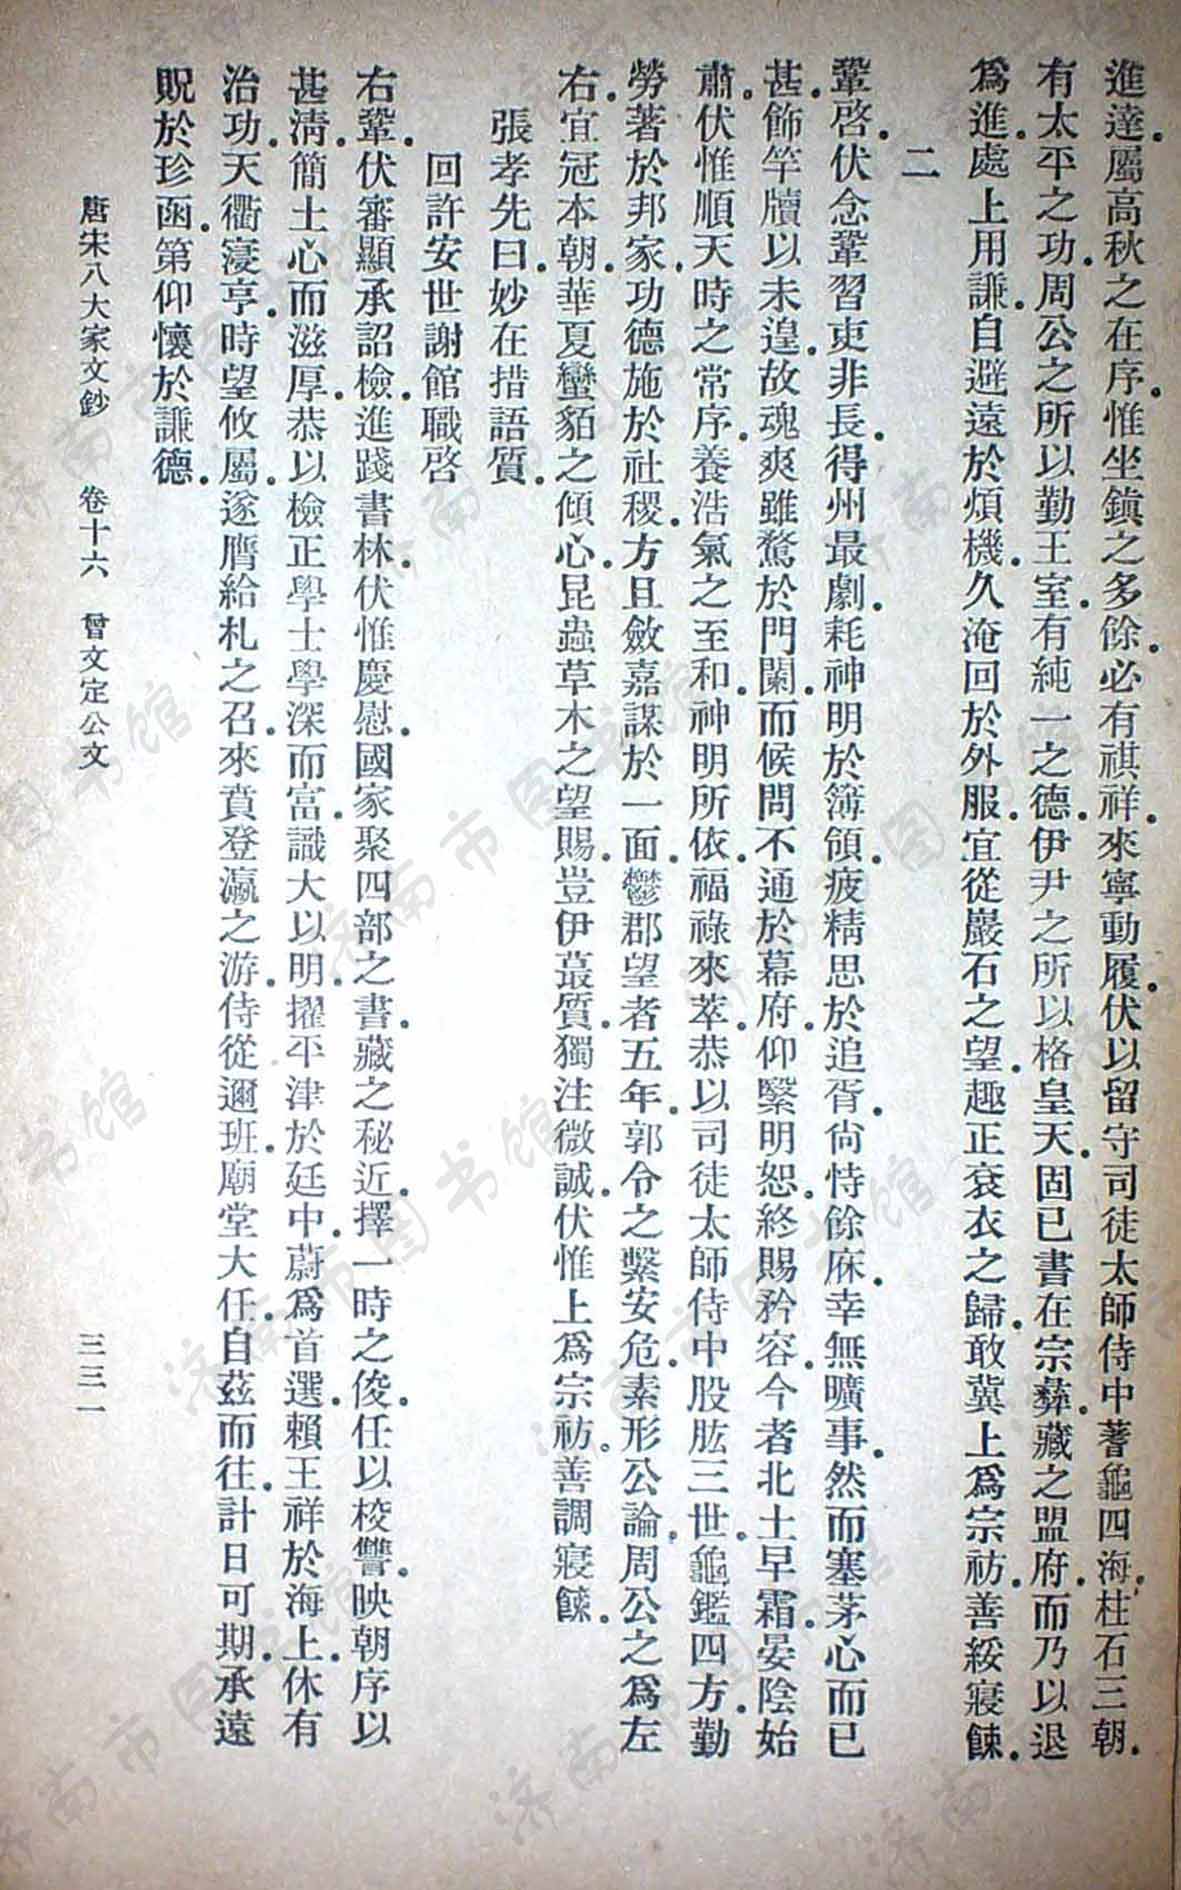 進達屬高秋之在序惟坐鎮之多餘必有祺祥來寧動履伏以留守司徒太師侍中蓍龜四海柱石三朝
有太平之功周公之所以勤王室有純一之德伊尹之所以格皇天固已書在宗彝藏之盟府而乃以退
爲進處上用謙自避遠於煩機久淹回於外服宜從巖石之望趣正袞衣之歸敢冀上爲宗祊善綏寢餗
二
鞏啓伏念鞏習吏非長得州最劇耗神明於簿領疲精思於追胥尙恃餘庥幸無曠事然而塞茅心而已
甚飾竿牘以未遑故魂爽雖騖於門闌而候問不通於幕府仰繄明恕終賜矜容今者北土早霜晏陰始
肅伏惟順天時之常序養浩氣之至和神明所依福祿來萃恭以司徒太師侍中股肱三世龜鑑四方勤
勞著於邦家功德施於社稷方且斂嘉謀於一面鬱郡望者五年郭令之繫安危素形公論周公之爲左
右宜冠本朝華夏蠻貊之傾心昆蟲草木之望賜豈伊蕞質獨注微誠伏惟上爲宗祊善調寢餗
張孝先曰妙在措語質
回許安世謝館職啓
右鞏伏審顯承詔檢進踐書林伏惟慶慰國家聚四部之書藏之秘近擇一時之俊任以校讐映朝序以
甚淸簡士心而滋厚恭以檢正學士學深而富識大以明擢平津於廷中蔚爲首選賴王祥於海上休有
治功天衢寖亨時望攸屬遂膺給札之召來賁登瀛之游侍從邇班廟堂大任自茲而往計日可期承遠
貺於珍函第仰懷於謙德
唐宋八大家文鈔 卷十六 曾文定公文 三三一
济南市图书馆